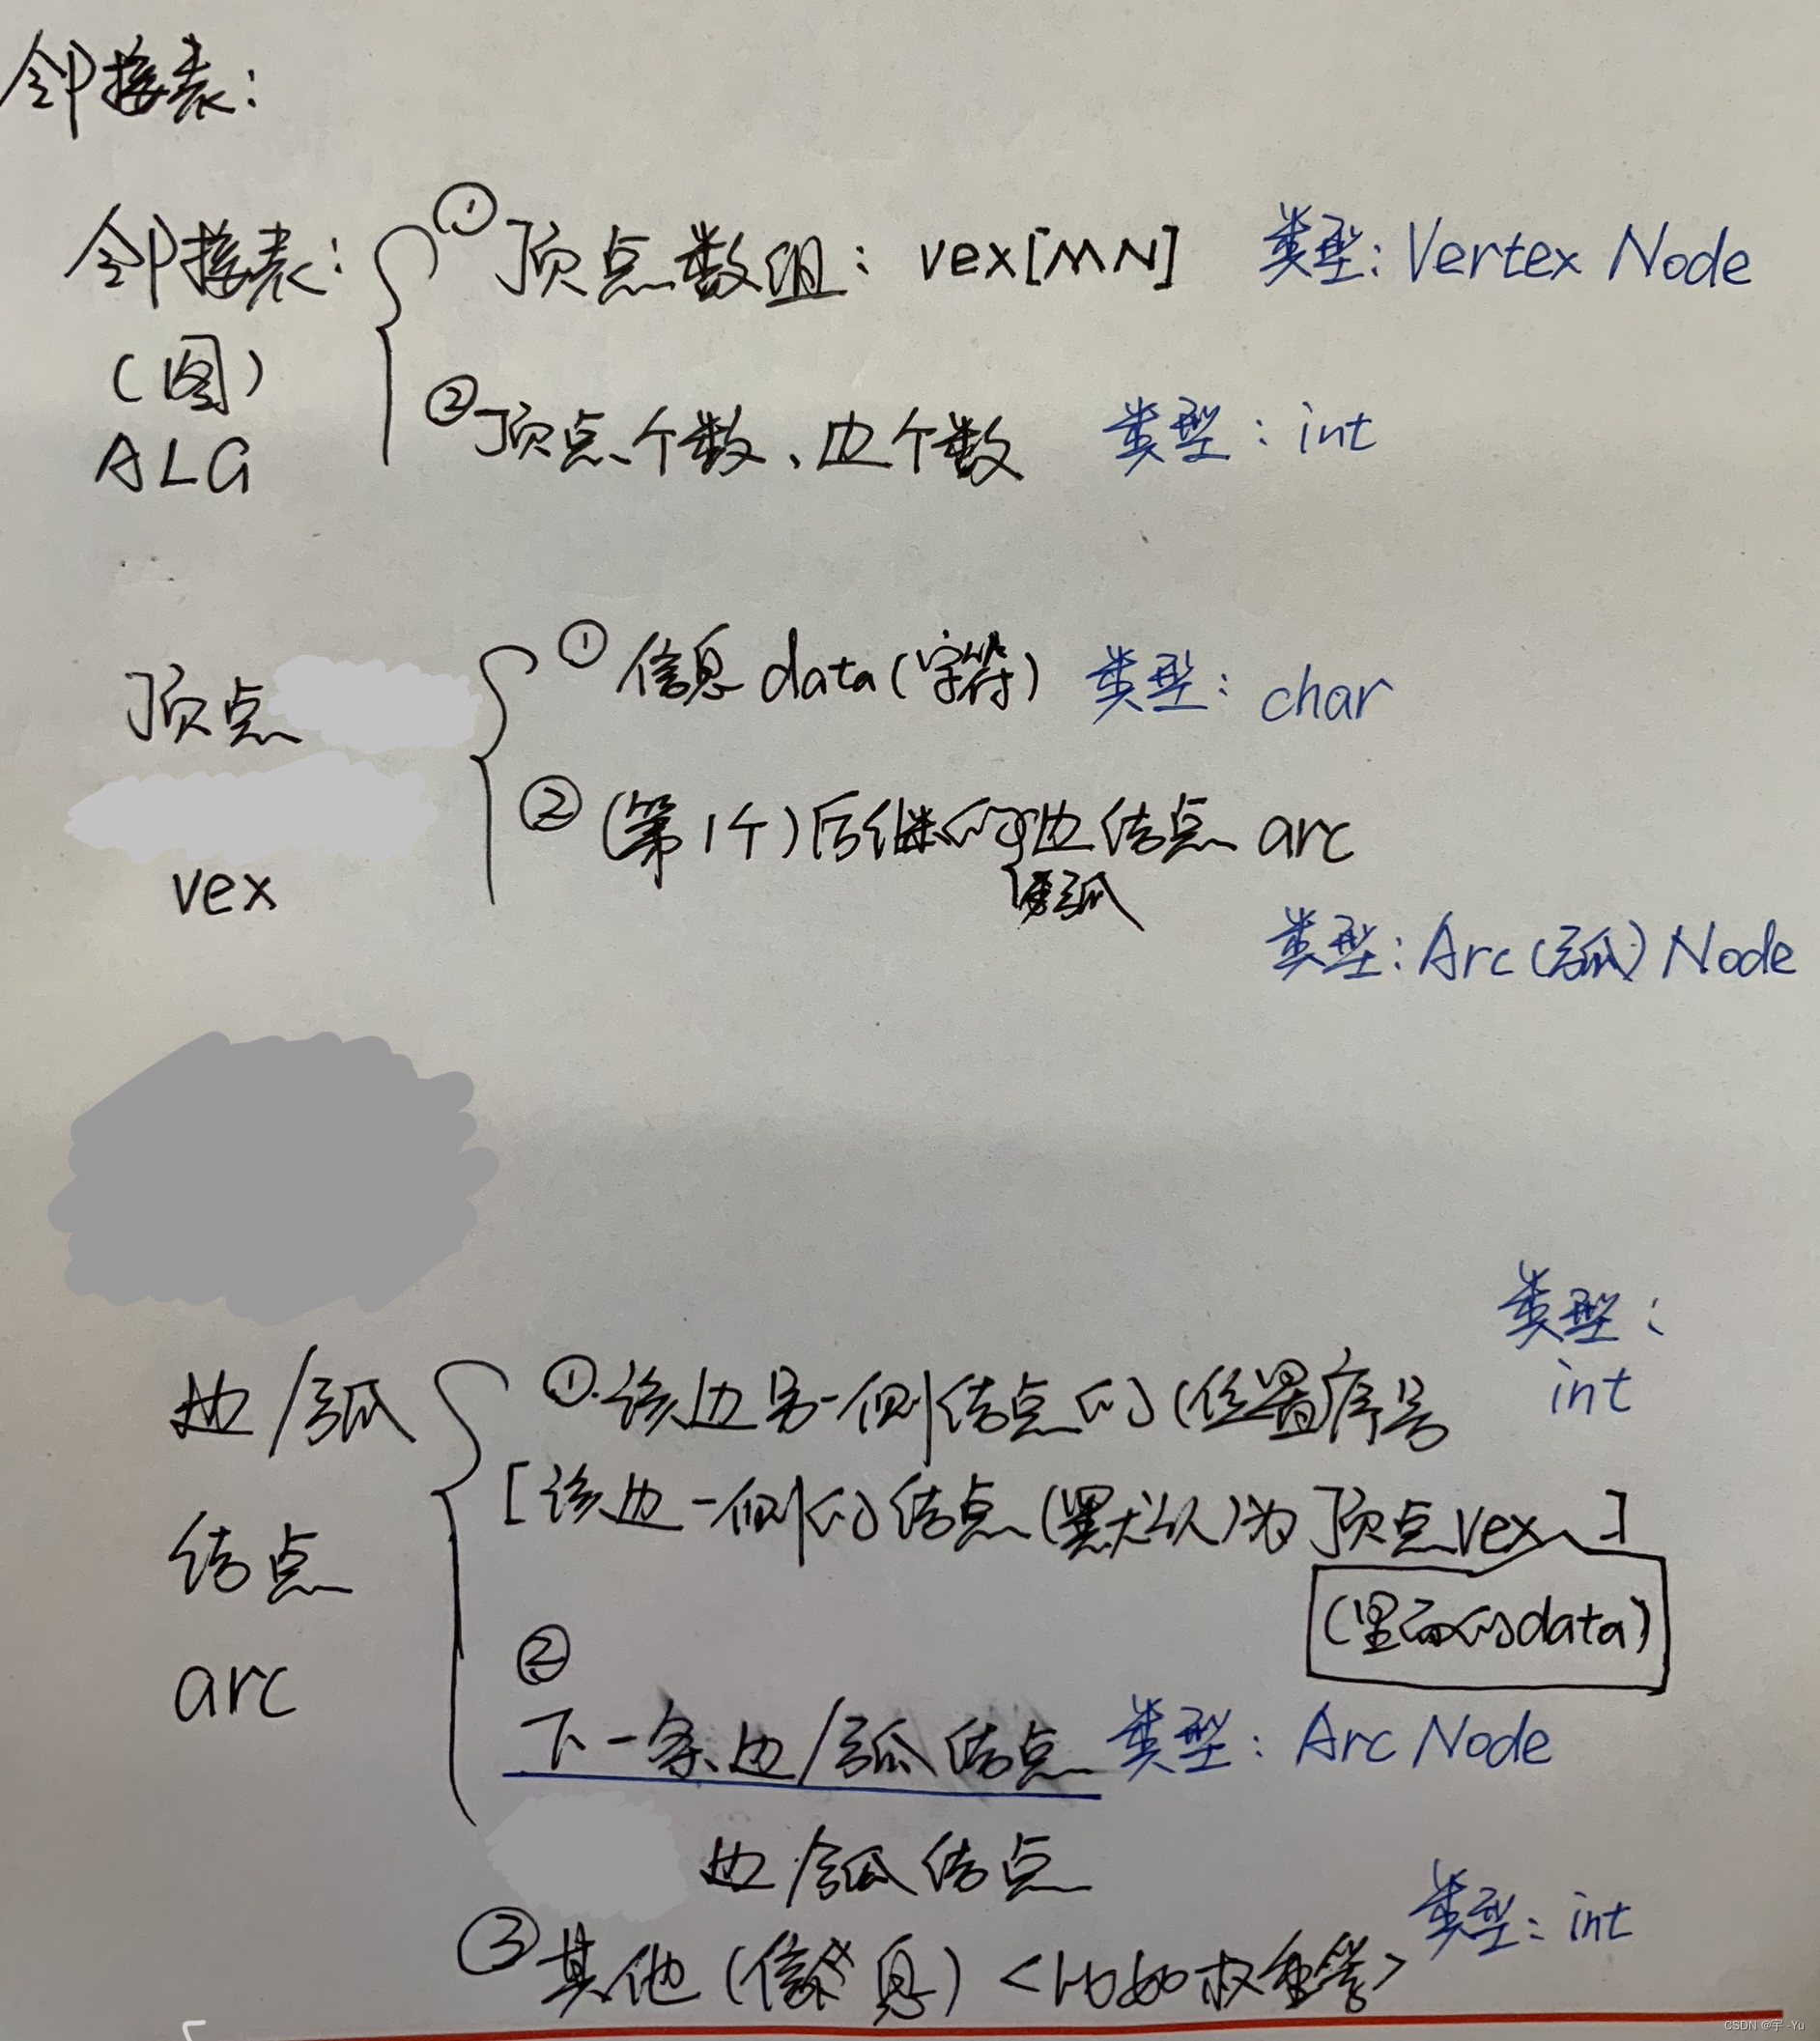 邻接表:
邻接表: ①顶点数组: vex[MN] 类型: Vertex Node
(图)
ALG
②顶点个数、边个数 类型: int
顶点
vex
①信息 data(字符) 类型: char
②(第1个)后继的边结点 arc
弧
类型: Arc(弧) Node
边/弧
结点
arc
类型:
int
①.该边另一侧结点的(位置)序号
[该边一侧的结点(默认)为顶点vex]
(里面的data)
②
下一条边/弧结点 类型: Arc Node
边/弧结点
③其他(信息)<比如权重等> 类型: int
CSDN @宇-Yu